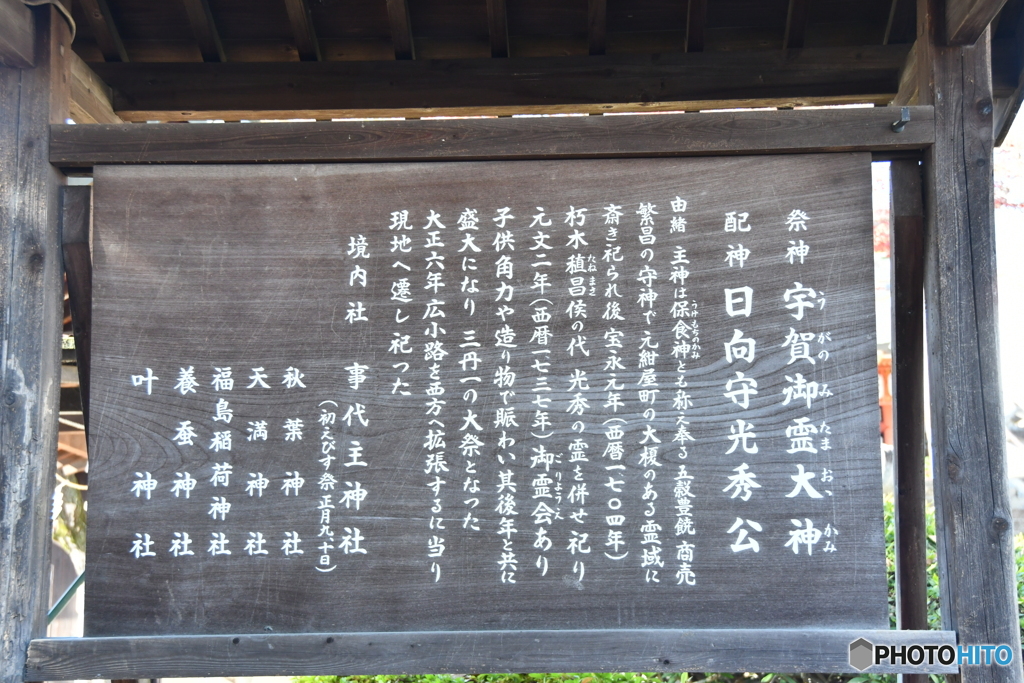 祭神 宇賀御霊大神
うがのみたまおゝかみ
配神 日向守光秀公
由緒 主神は保食神とも称え奉る 五穀豊饒 商売
うけもちのかみ
繁昌の守神で 元紺屋町の大榎のある霊域に
斎き祀られ後 宝永元年（西暦一七〇四年）
朽木稙昌侯の代 光秀の霊を併せ祀り
たねまさ
元文二年（西暦一七三七年）御霊会あり
ごりようえ
子供角力や造り物で賑わい其後年と共に
盛大になり 三丹一の大祭となった
大正六年広小路を西方へ拡張するに当り
現地へ遷し祀った
境内社 事代主神社
（初えびす祭正月九、十日）
秋葉神社
天満神社
福島稲荷神社
養蚕神社
叶神社
PHOTOHITO